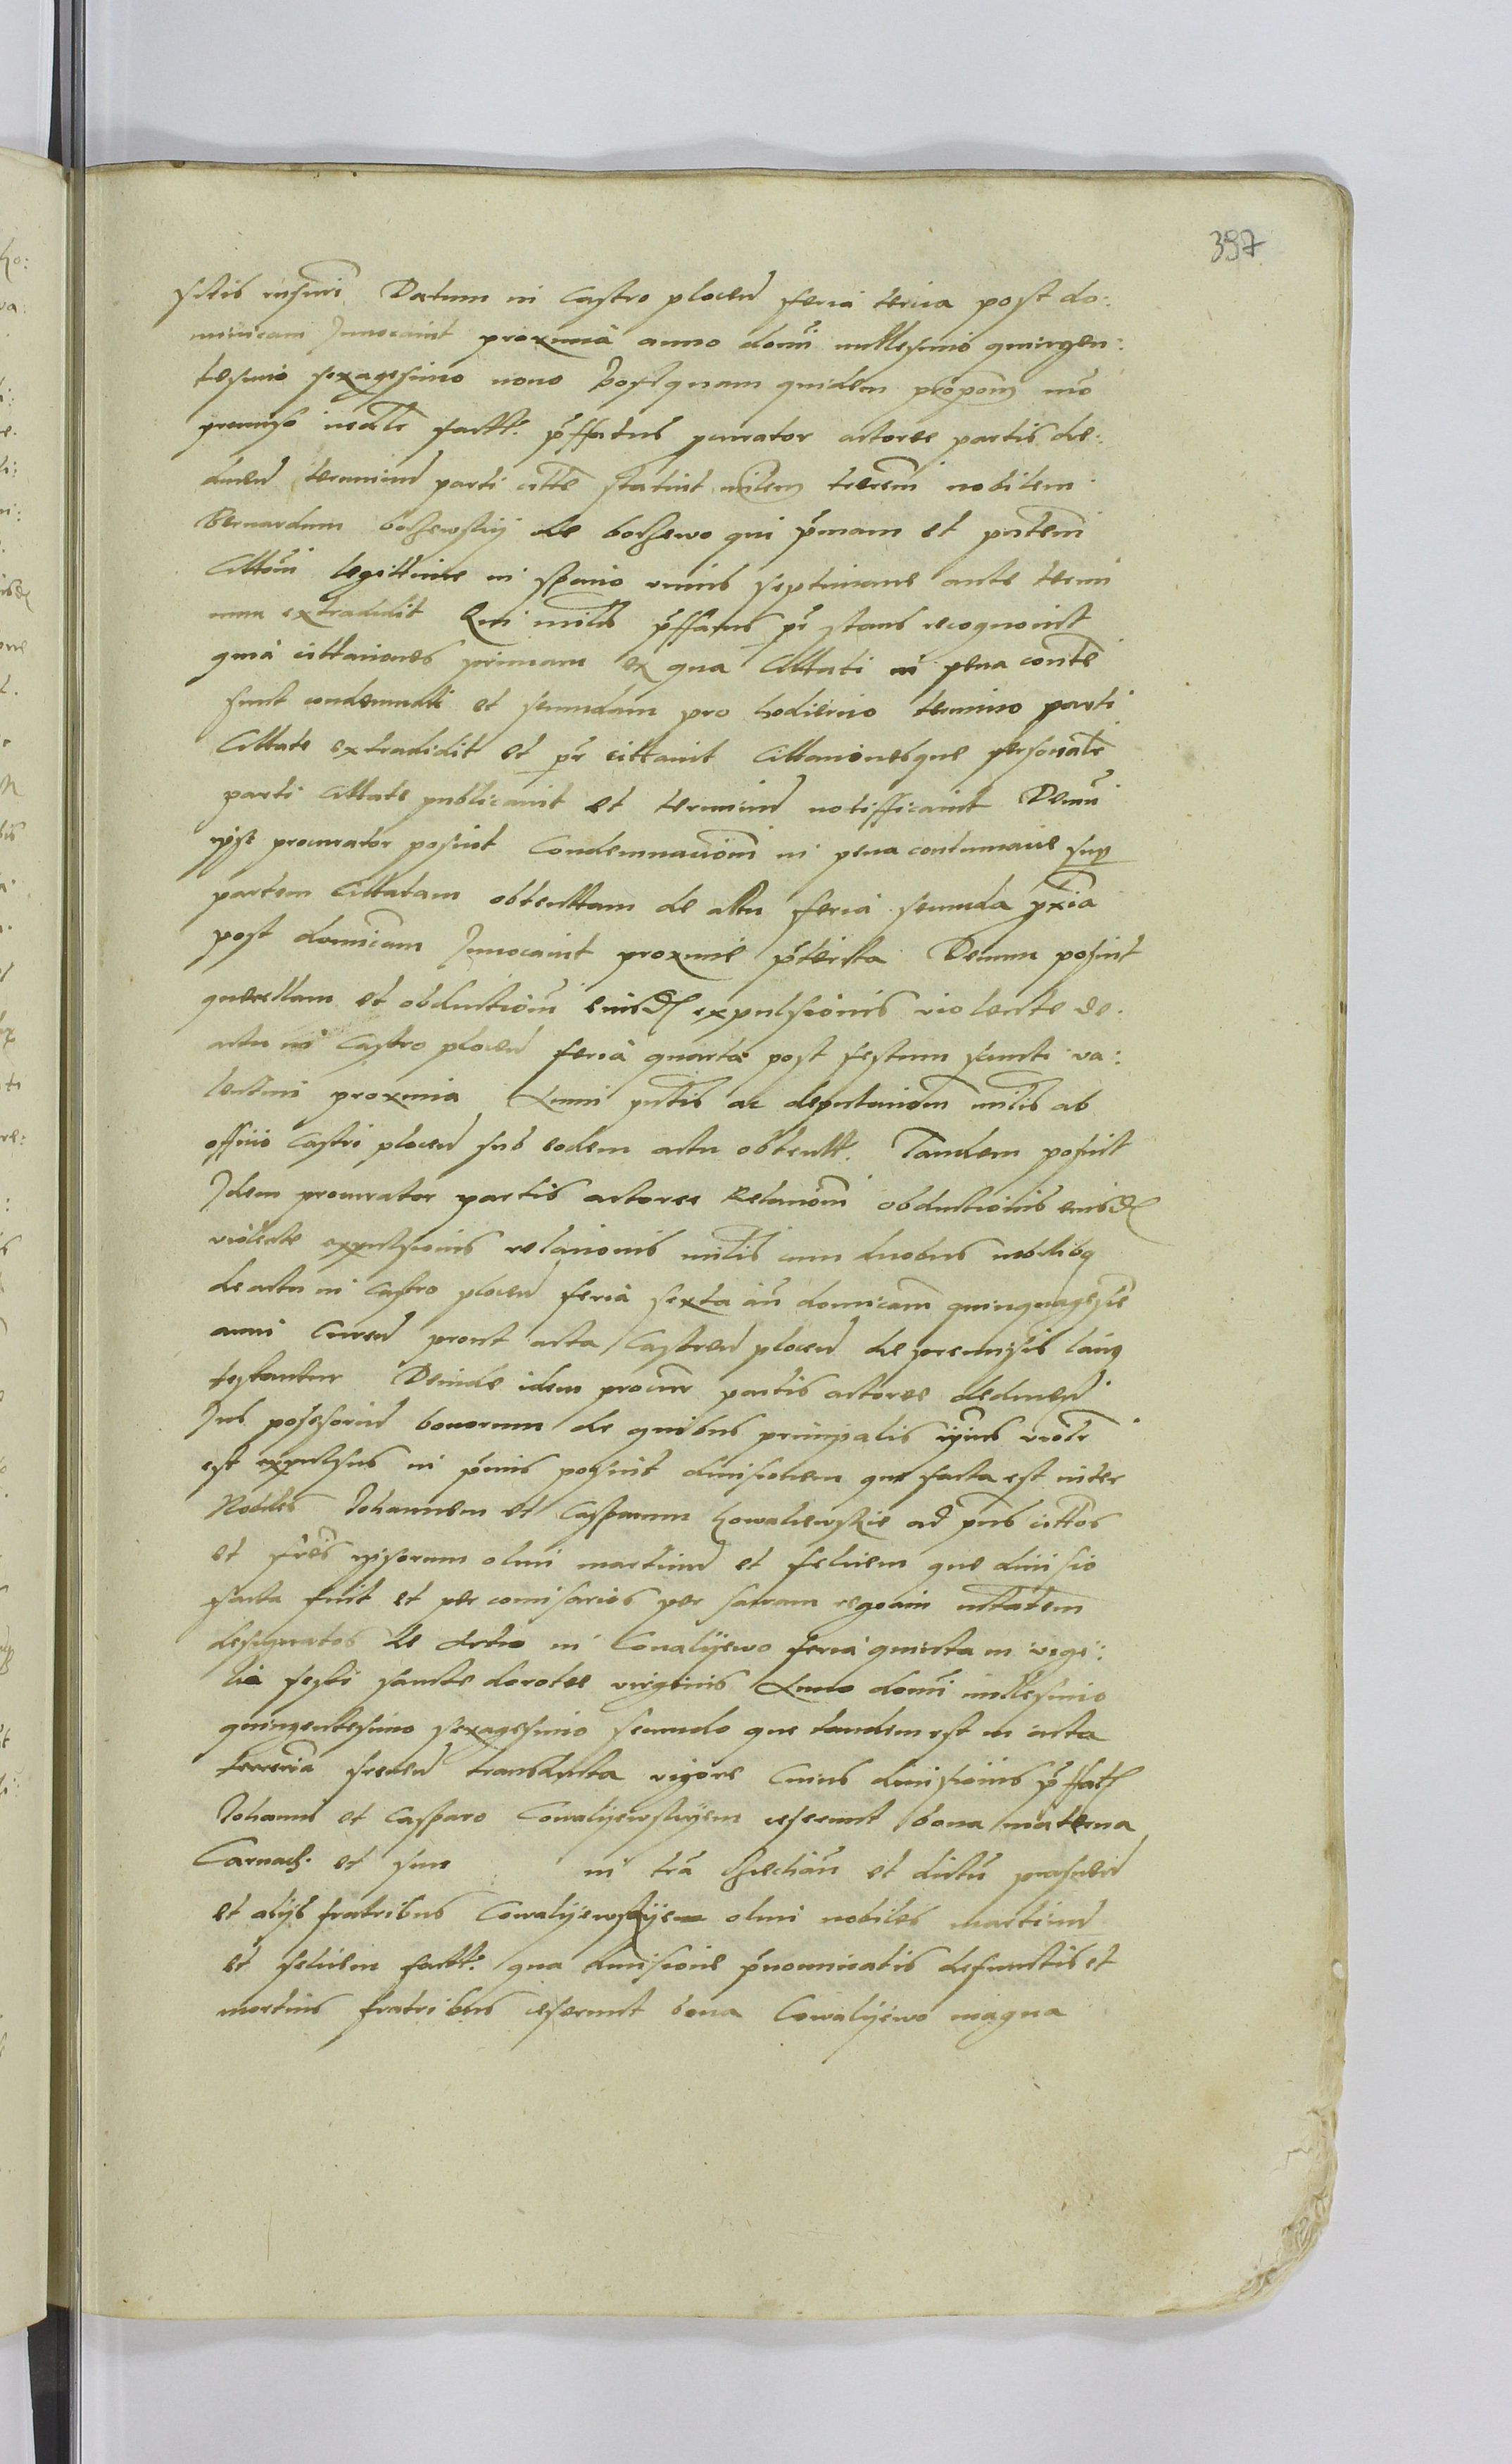 397
sitis insuri Datum in Castro plocen feria tercia post do:
minicam Invocavit proxima anno domi millesimo quingen:
tesimo sexagesimo nono Postquam quidem proponem mo
premisso iudlr factt. prffatus procurator actoree partis de:
ducen terminum parti citte statuit mitem trerem nobilem
Bernardum bochewskij de bochewo qui primam et pntem
Cittom legittime in spacio unius septimane ante termi
num extradidit Qui milis prffatus pr stans recognovit
quia cittationes primam ex qua Cittati in pena conte
sunt condemnati et secundam pro hodierno termino parti
Cittate extradidit et pr cittavit Cittationesque personalr
parti Cittate publicavit et terminum notifficavit Demum
ipse procurator posuit Condemnationem in pena contumacie sup
partem Cittatam obtenttam de actu feria secunda proxia
post domicam Invocavit proxime preterita Demum posuit
querellam et obductionem eiusd expulsionis violente de
actu in Castro plocen feria quarta post festum sancti va:
lentini proxima Anni pntis ac deputationem milis ab
officio Castri plocen sub eodem actu obtentt. Tandem posuit
Idem procurator partis actoree Relationem obductionis eiusd
violente expulsionis relationis militis cum duobus nobilibq
de actu in Castro plocen feria sexta an domicam quinquagesie
anni Curen prout acta Castren plocen de premisis laciq
testantur Deinde idem procurr partis actoree deducen
Jus possesorium bonorum de quibus principalis ipius violr
est expulsus in primis posuit divisionem que facta est inter
Nobiles Johannem et Casparum kowalewskie ad pns cittos
et fres ipsorum olim martinum et felicem que divisio
facta fuit et per comisarios per sacram regiam mtatem
designatos de Actio in Covalijewo feria quinta in vigi:
lia festi sancte dorotee virginis Anno domi millesimo
quingentesimo sexagesimo secundo que tandem est in acta
terreria sreden translata vigore Cuius divisionis prffatis
Johanni et Casparo Covalijewskijem cesserunt bona materna
Carnach. et sue in tra Ciechan et dictum prasnen
et alijs fratribus Cowalijewskijem olim nobiles martinum
et felicem factt. qua divisione prnominatis defunctis et
mortuis fratribus cesserunt bona Cowalijewo magna